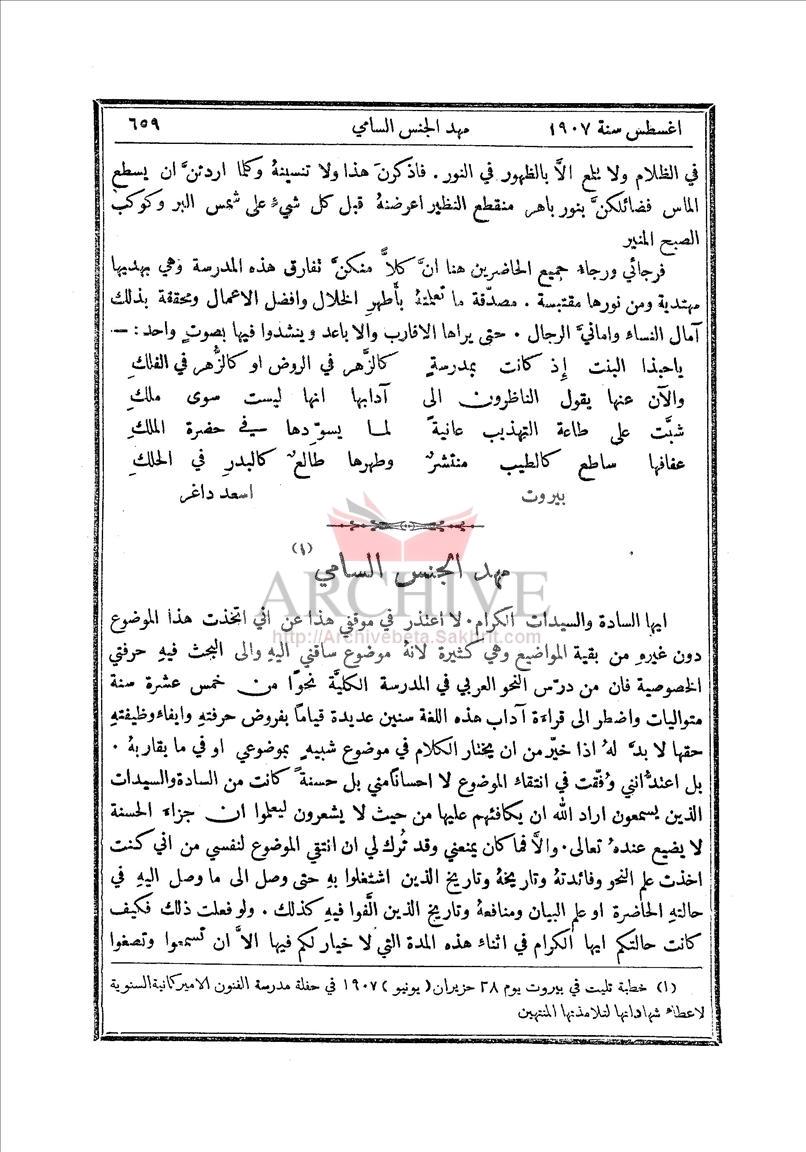 اغسطس سنة ١٩٠٧ مهد الجنس السامي ٦٥٩
في الظلام ولا يلمع الاَّ بالظهور في النور . فاذكرنَ هذا ولا تنسينهُ وكلما اردتنَّ ان يسطع
الماس فضائلكنَّ بنور باهر منقطع النظير اعرضنهُ قبل كل شيءٍ على شمس البر وكوكب
الصبح المنير
فرجائي ورجاءُ جميع الحاضرين هنا انَّ كلاًّ منكنَّ تفارق هذه المدرسة وهي بهديها
مهتدية ومن نورها مقتبسة . مصدّقة ما تعلمتهُ بأَطهر الخلال وافضل الاعمال ومحققة بذلك
آمال النساء وامانيَّ الرجال . حتى يراها الاقارب والاباعد وينشدوا فيها بصوتٍ واحد : —
ياحبذا البنت إِذ كانت بمدرسةٍ كالزَّهر في الروض او كالزُّهر في الفلكِ
والآن عنها يقول الناظرون الى آدابها انها ليست سوى ملكِ
شبَّت على طاعة التهذيب عانيةً لما يسوّدها في حضرة الملكِ
عفافها ساطع كالطيب منتشرٌ وطهرها طالعٌ كالبدرِ في الحلكِ
بيروت اسعد داغر
ARCHIVE
http://Archivebeta.Sakhrit.com
مهد الجنس السامي (١)
ايها السادة والسيدات الكرام . لا اعتذر في موقفي هذا عن اني اتخذت هذا الموضوع
دون غيره من بقية المواضيع وهي كثيرة لانهُ موضوع ساقني اليهِ والى البحث فيهِ حرفتي
الخصوصية فان من درّس النحو العربي في المدرسة الكليَّة نحوًا من خمس عشرة سنة
متواليات واضطر الى قراءة آداب هذه اللغة سنين عديدة قياماً بفروض حرفتهِ وايفاء وظيفتهِ
حقها لا بدَّ لهُ اذا خيّر من ان يختار الكلام في موضوع شبيهٍ بموضوعي او في ما يقاربهُ .
بل اعتدُّ انني وُفّقت في انتقاء الموضوع لا احسانًا مني بل حسنةً كانت من السادة والسيدات
الذين يسمعون اراد الله ان يكافئهم عليها من حيث لا يشعرون ليعلموا ان جزاء الحسنة
لا يضيع عندهُ تعالى . والاَّ فما كان يمنعني وقد تُرك لي ان انتقي الموضوع لنفسي من اني كنت
اخذت علم النحو وفائدتهُ وتاريخهُ وتاريخ الذين اشتغلوا بهِ حتى وصل الى ما وصل اليهِ في
حالتهِ الحاضرة او علم البيان ومنافعهُ وتاريخ الذين الَّفوا فيهِ كذلك . ولو فعلت ذلك فكيف
كانت حالتكم ايها الكرام في اثناء هذه المدة التي لا خيار لكم فيها الاَّ ان تسمعوا وتصغوا
(١) خطبة تليت في بيروت يوم ٢٨ حزيران ( يونيو ) ١٩٠٧ في حفلة مدرسة الفنون الاميركانية السنوية
لاعطاء شهاداتها لتلامذتها المنتهين